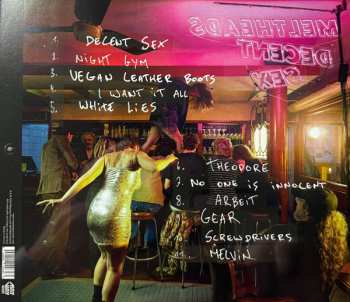 MELTHEADS
DECENT
SEX
1. DECENT SEX
2. NIGHT GYM
3. VEGAN LEATHER BOOTS
I WANT IT ALL
5. WHITE LIES
6. THEODORE
7. NO ONE IS INNOCENT
8. ARBEIT
GEAR
SCREWDRIVERS
MELVIN